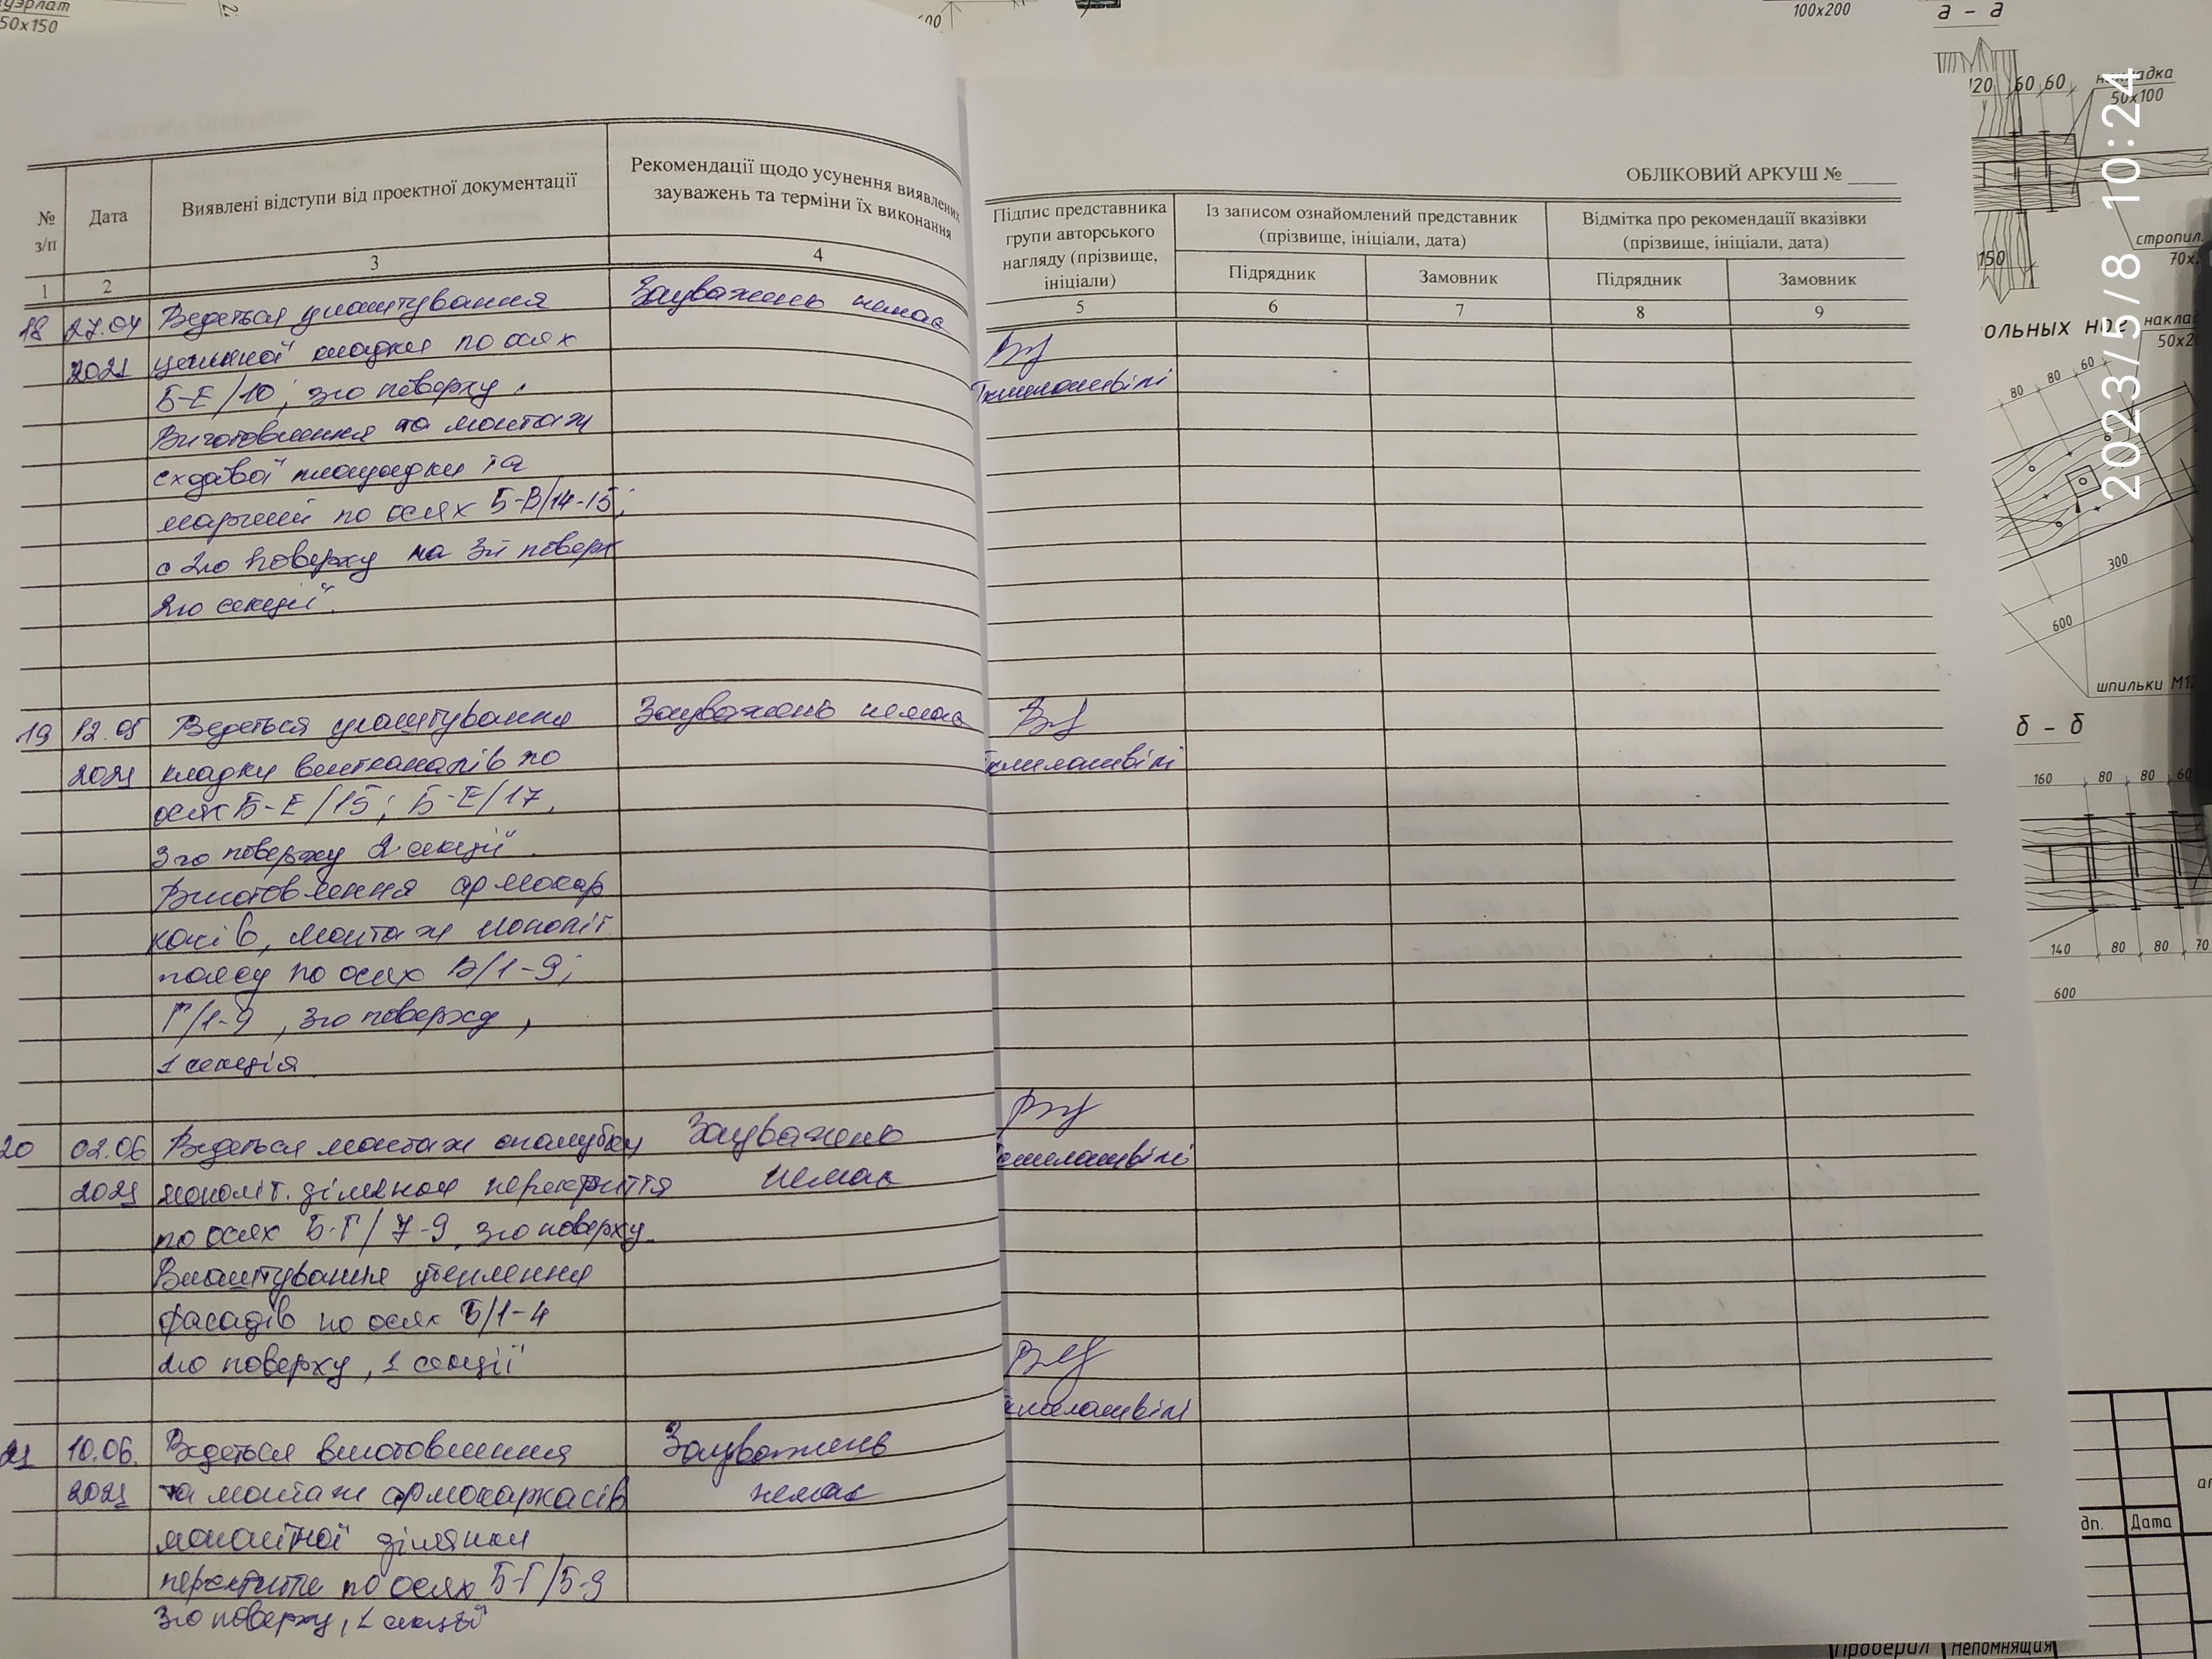 уэрлат
50х150
100х200
а - а
120 60 60
накладка
50х100
2023/5/8 10:24
ОБЛІКОВИЙ АРКУШ №
№ з/п
Дата
Виявлені відступи від проектної документації
Рекомендації щодо усунення виявлених
зауважень та терміни їх виконання
Підпис представника
групи авторського
нагляду (прізвище,
ініціали)
Із записом ознайомлений представник
(прізвище, ініціали, дата)
Відмітка про рекомендації вказівки
(прізвище, ініціали, дата)
Підрядник
Замовник
Підрядник
Замовник
1 2 3 4 5 6 7 8 9
18 27.04 Ведеться улаштування Зауважень немає
2021 цегляної кладки по осях
Б-Е/10; 3го поверху.
Виготовлення та монтаж
сходової площадки та
маршей по осях Б-В/14-15;
с 2го поверху на 3й поверх
2го секції.
19 12.05 Ведеться улаштування Зауважень немає
2021 кладки вентканалів по
осях Б-Е/15; Б-Е/17,
3го поверху 2 секції.
Виготовлення армокар
касів, монтаж моноліт
поясу по осях В/1-9;
Г/1-9, 3го поверху,
1 секція
20 02.06 Ведеться монтаж опалубки Зауважень
2021 моноліт. ділянок перекриття немає
по осях Б-Г/7-9, 3го поверху.
Влаштування утеплення
фасадів по осях Б/1-4
2го поверху, 1 секції
21 10.06. Ведеться виготовлення Зауважень
2021 та монтаж армокаркасів немає
монолітної ділянки
перекриття по осях Б-Г/5-9
3го поверху, 1 секції
стропил.
150
ольных ног
наклад
50х2
80 80 60
300
600
шпильки М12
б - б
160 80 80 60
140 80 80 70
600
дп. Дата
Проверил Непомнящия